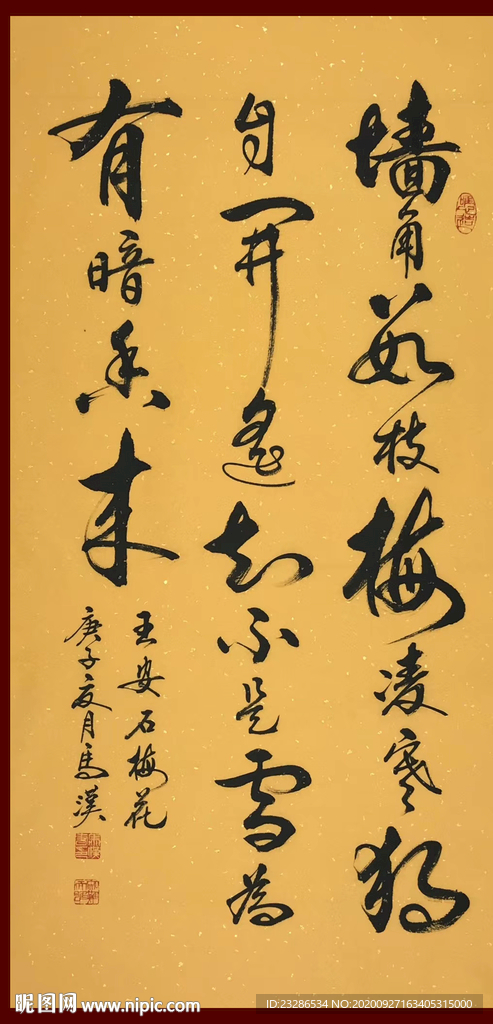 墙角數枝梅凌寒獨
自開遙知不是雪為
有暗香来
王安石梅花
庚子夏月馬
昵图网 www.nipic.com
ID:23286534 NO:20200927163405315000